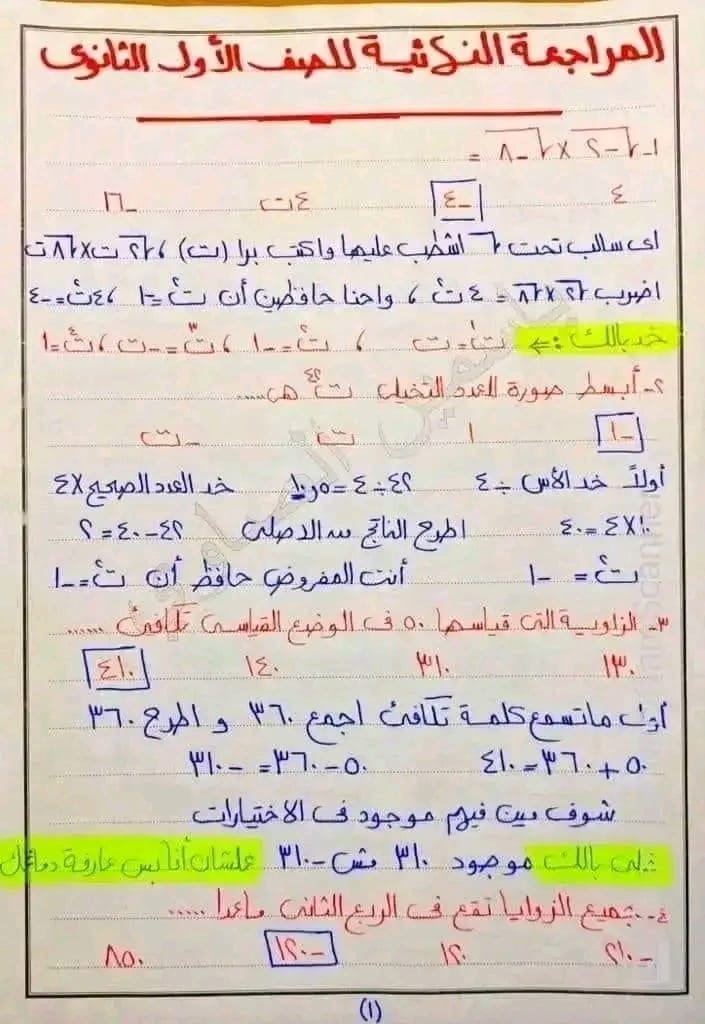 المراجعة النهائية للصف الأول الثانوى
١- √-٢ × √-٨ =
٤ -٤ ٤ت -١٦
اى سالب تحت √ اشطب عليها واكتب برا (ت) ، √٢ ت × √٨ ت
اضرب √٢ × √٨ = ٤ ت² ، واحنا حافظين أن ت² = -١ ، ٤ت² = -٤
خد بالك :⇐ ت¹ = ت ، ت² = -١ ، ت³ = -ت ، ت⁴ = ١
٢- أبسط صورة للعدد التخيلى ت⁴² هى ....
-١ ١ ت -ت
أولاً خد الأس ÷ ٤ ٤٢ ÷ ٤ = ١٠,٥ خد العدد الصحيح × ٤
١٠ × ٤ = ٤٠ اطرح الناتج من الاصلى ٤٢ - ٤٠ = ٢
ت² = -١ أنت المفروض حافظ أن ت² = -١
٣- الزاوية التى قياسها ٥٠ فى الوضع القياسى تكافئ ......
١٣٠ ٣١٠ ١٤٠ ٤١٠
أول ماتسمع كلمة تكافئ اجمع ٣٦٠ و اطرح ٣٦٠
٥٠ + ٣٦٠ = ٤١٠ ٥٠ - ٣٦٠ = -٣١٠
شوف مين فيهم موجود فى الاختيارات
خلى بالك موجود ٣١٠ مش -٣١٠ علشان أنا بس عارفة دماغك
٤- جميع الزوايا تقع فى الربع الثانى ماعدا .....
-٢١٠ ١٢٠ -١٢٠ ٨٥٠
(١)
ياسمين الصاوي